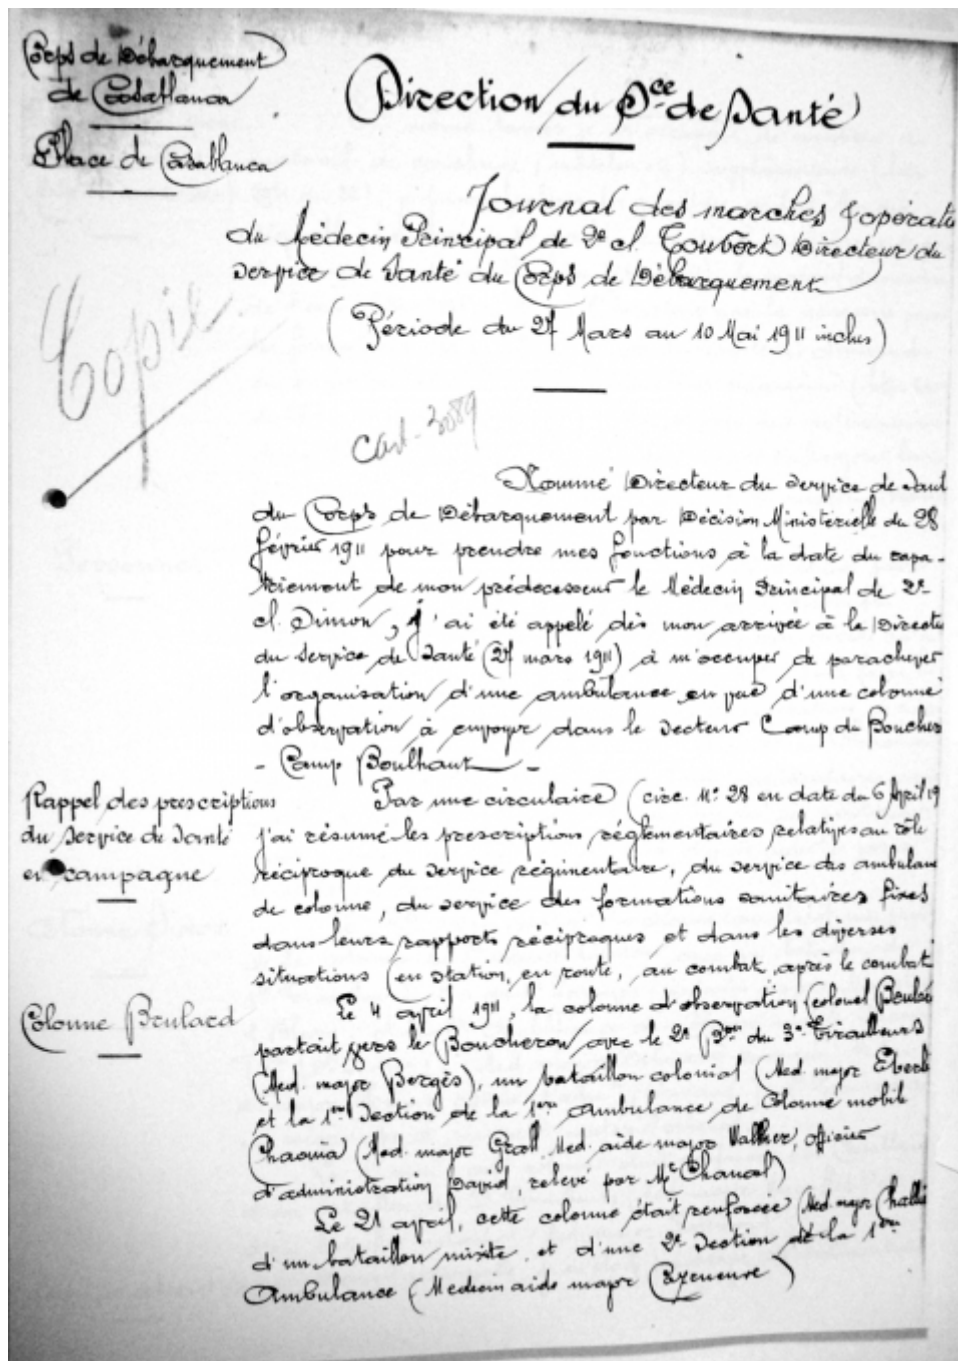 Corps de Débarquement
de Casablanca
Place de Casablanca
Direction du Sce de Santé
Journal des marches & opérati
du Médecin Principal de 2e cl. Toubert Directeur du
Service de Santé du Corps de Débarquement
(Période du 27 Mars au 10 Mai 1911 inclus)
Copie
Cart. 3089
Nommé Directeur du Service de Sant
du Corps de Débarquement par Décision Ministérielle du 28
février 1911 pour prendre mes fonctions à la date du rapa-
triement de mon prédécesseur le Médecin Principal de 2e
cl. Simon, j'ai été appelé dès mon arrivée à la Directio
du Service de Santé (27 mars 1911) à m'occuper de parachever
l'organisation d'une ambulance en vue d'une colonne
d'observation à envoyer dans le Secteur Camp du Boucher
- Camp Boulhaut -
Rappel des prescriptions
du Service de Santé
en campagne
Par une circulaire (circ. No 28 en date du 6 April 19
j'ai résumé les prescriptions réglementaires relatives au rôle
réciproque du service régimentaire, du service des ambulan
de colonne, du service des formations sanitaires fixes
dans leurs rapports réciproques et dans les diverses
situations (en station, en route, au combat, après le combat
Colonne Brulard
Le 4 avril 1911, la colonne d'observation (colonel Brular
partait vers le Boucheron avec le 2e Bon du 3e Tirailleurs
(Med. major Bergès), un bataillon colonial (Med. major Eberl
et la 1ère Section de la 1ère Ambulance de Colonne mobile
Chaouïa (Med. major Grall, Med. aide major Walther, officier
d'administration David, relevé par Mr Chancel)
Le 21 avril, cette colonne était renforcée (Med. major Challi
d'un bataillon mixte et d'une 2e Section de la 1ère
Ambulance (Medecin aide major)